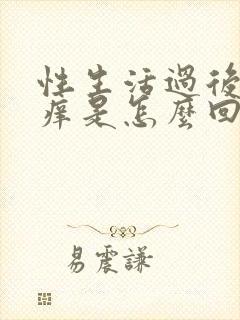 性生活過後
癢是怎麼回
易震謙